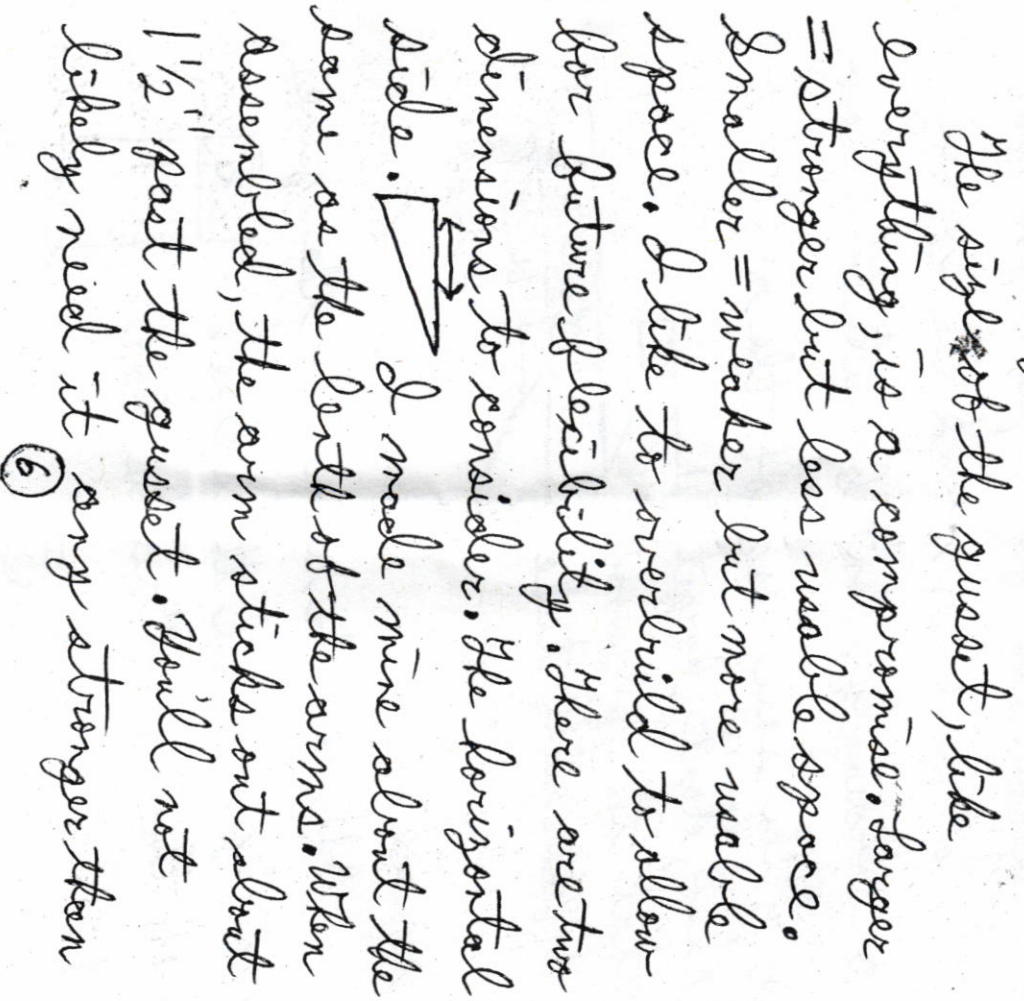 The size of the gusset, like
everything, is a compromise. Larger
= stronger but less usable space.
Smaller = weaker but more usable
space. I like to overbuild to allow
for future flexibility. There are two
dimensions to consider. The horizontal
side. I made mine about the
same as the lenth of the arms. When
assembled, the arm sticks out about
1 1/2" past the gusset. You'll not
likely need it any stronger than
6